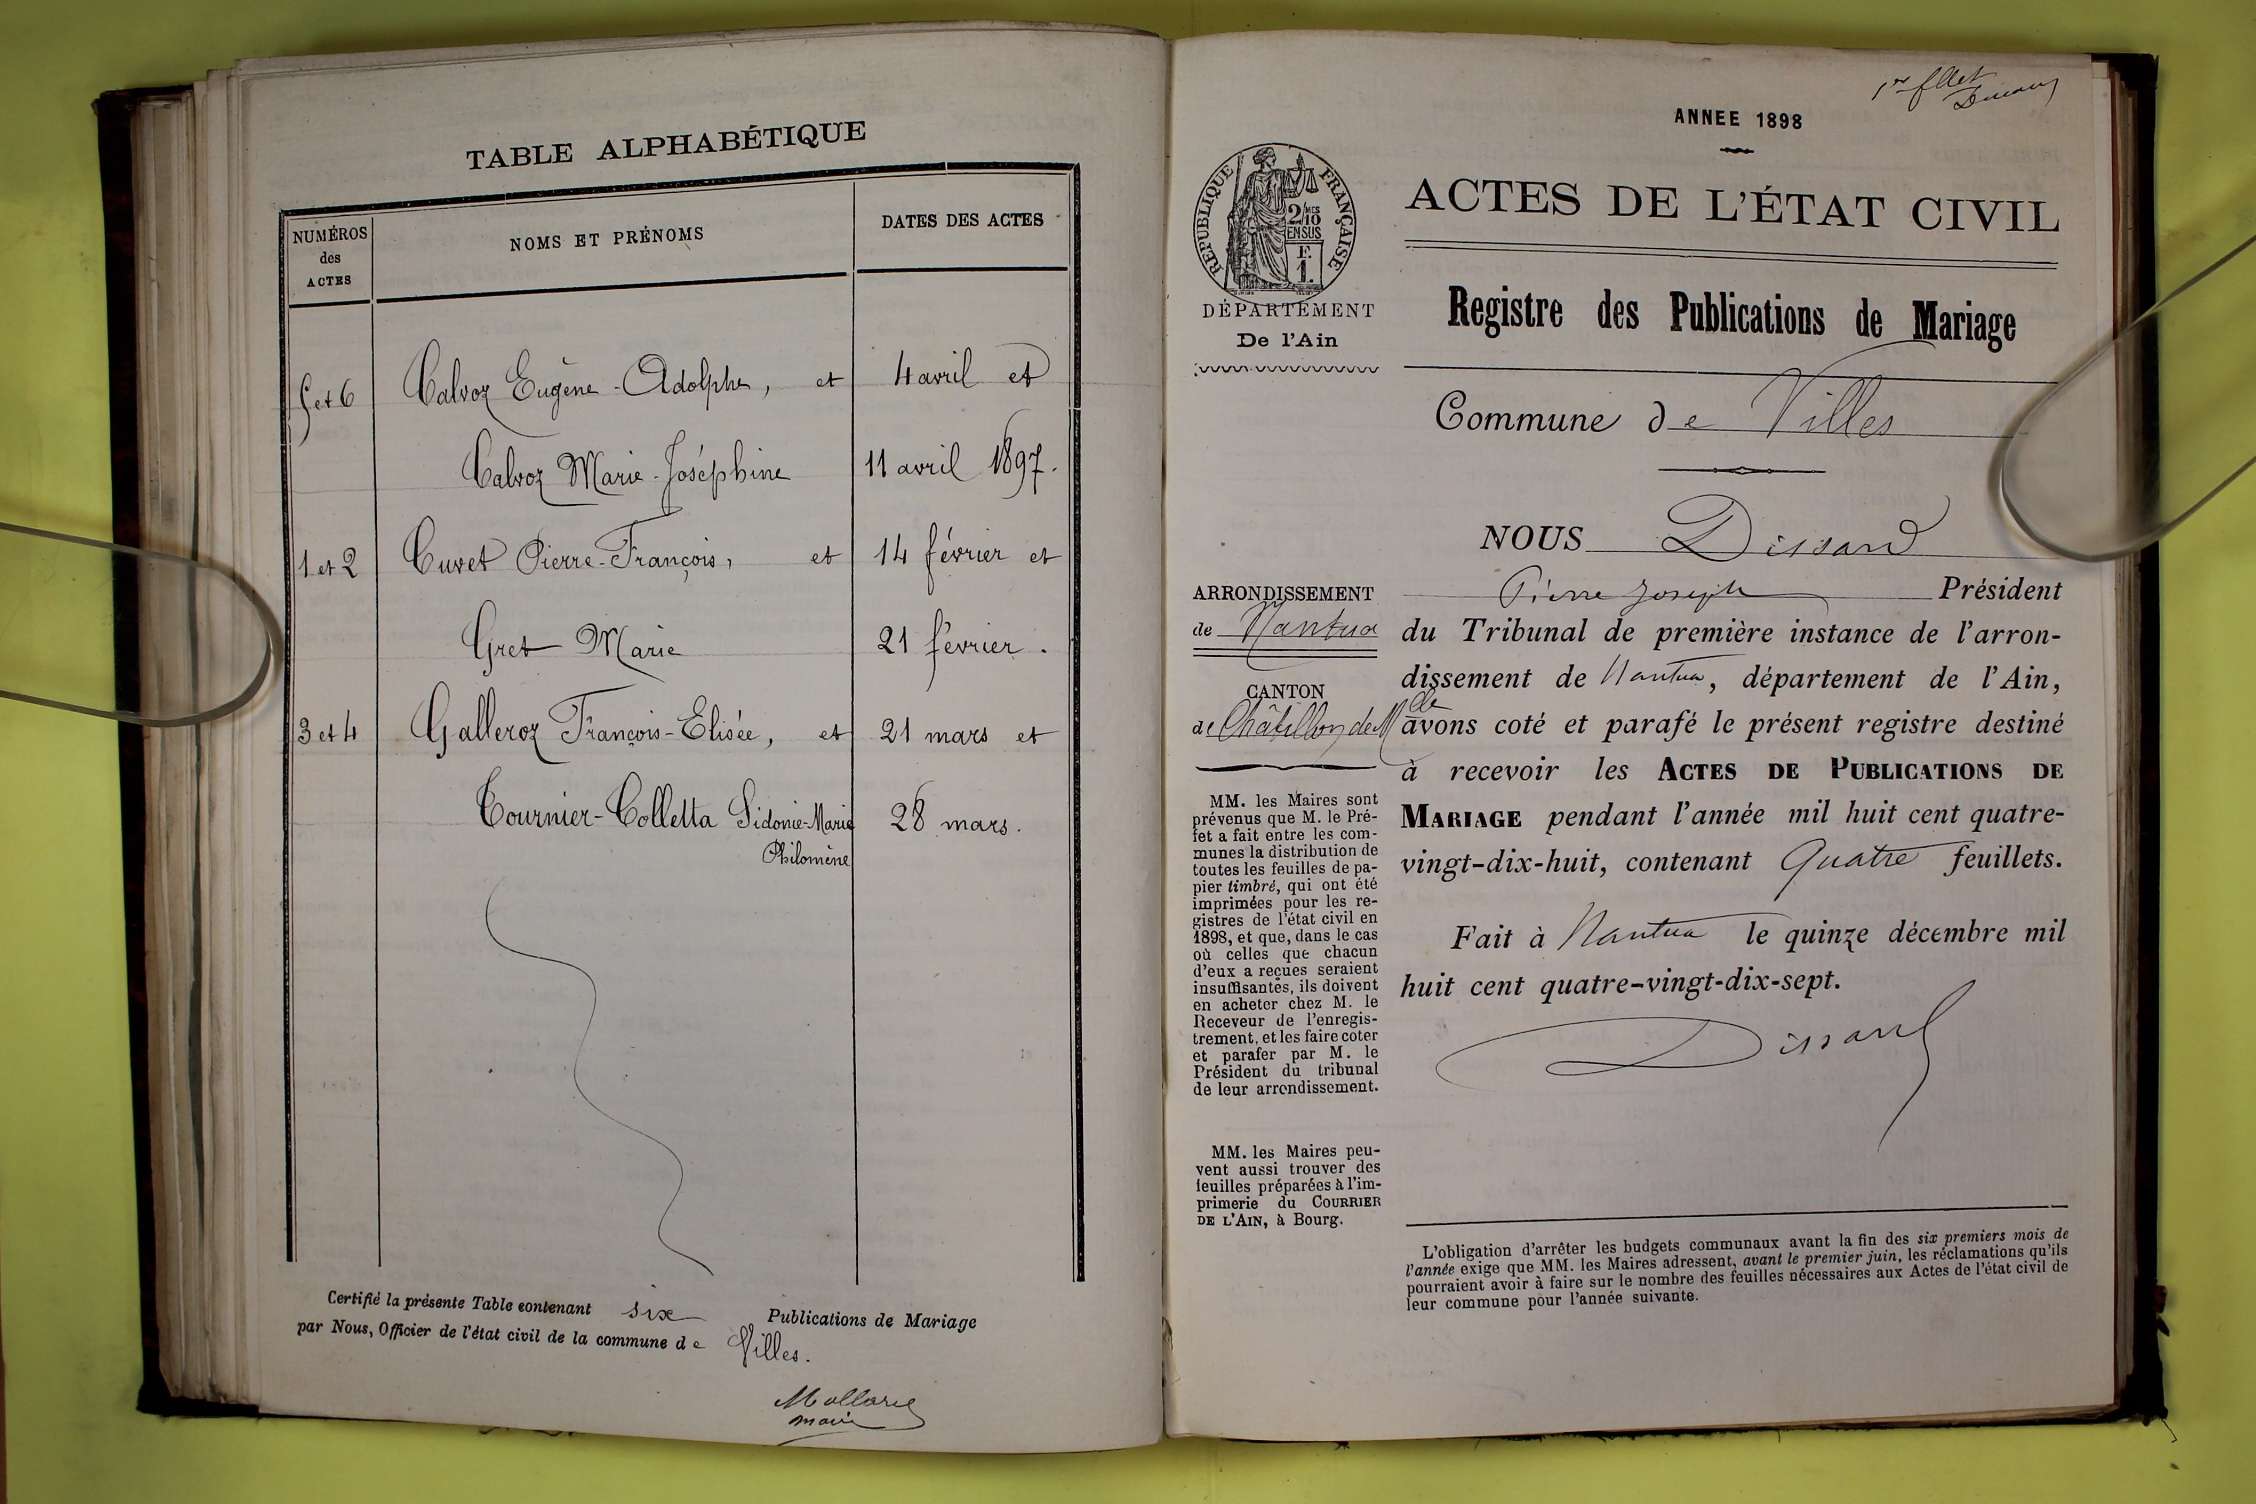 TABLE ALPHABÉTIQUE
NUMÉROS
des
ACTES
NOMS ET PRÉNOMS
DATES DES ACTES
5 et 6 Calvoz Eugène-Adolphe, et 4 avril et
Calvoz Marie-Joséphine 11 avril 1897.
1 et 2 Cuvet Pierre-François, et 14 février et
Gret Marie 21 février.
3 et 4 Galleroz François-Elisée, et 21 mars et
Tournier-Colletta Sidonie-Marie 28 mars.
Philomène
Certifié la présente Table contenant six Publications de Mariage
par Nous, Officier de l'état civil de la commune de Villes.
maire
1er fllet
ANNEE 1898
RÉPUBLIQUE FRANÇAISE
2/10 MES
EN SUS
F.
1.
ACTES DE L'ÉTAT CIVIL
DÉPARTEMENT
De l'Ain
Registre des Publications de Mariage
Commune de Villes
ARRONDISSEMENT
de Nantua
CANTON
de Châtillon de Mde
MM. les Maires sont
prévenus que M. le Pré-
fet a fait entre les com-
munes la distribution de
toutes les feuilles de pa-
pier timbré, qui ont été
imprimées pour les re-
gistres de l'état civil en
1898, et que, dans le cas
où celles que chacun
d'eux a reçues seraient
insuffisantes, ils doivent
en acheter chez M. le
Receveur de l'enregis-
trement, et les faire coter
et parafer par M. le
Président du tribunal
de leur arrondissement.
MM. les Maires peu-
vent aussi trouver des
feuilles préparées à l'im-
primerie du COURRIER
DE L'AIN, à Bourg.
NOUS Dissard
Pierre Joseph Président
du Tribunal de première instance de l'arron-
dissement de Nantua, département de l'Ain,
avons coté et parafé le présent registre destiné
à recevoir les ACTES DE PUBLICATIONS DE
MARIAGE pendant l'année mil huit cent quatre-
vingt-dix-huit, contenant Quatre feuillets.
Fait à Nantua le quinze décembre mil
huit cent quatre-vingt-dix-sept.
Dissard
L'obligation d'arrêter les budgets communaux avant la fin des six premiers mois de
l'année exige que MM. les Maires adressent, avant le premier juin, les réclamations qu'ils
pourraient avoir à faire sur le nombre des feuilles nécessaires aux Actes de l'état civil de
leur commune pour l'année suivante.